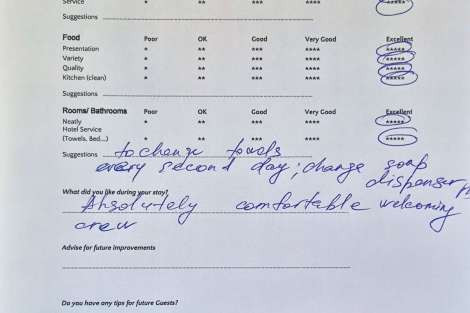 Service * ** *** **** *****
Suggestions
Food Poor OK Good Very Good Excellent
Presentation * ** *** **** *****
Variety * ** *** **** *****
Quality * ** *** **** *****
Kitchen (clean) * ** *** **** *****
Suggestions
Rooms/ Bathrooms Poor OK Good Very Good Excellent
Neatly * ** *** **** *****
Hotel Service
(Towels, Bed...) * ** *** **** *****
Suggestions to change towels
every second day; change soap
dispenser
What did you like during your stay?
Absolutely comfortable welcoming
crew
Advise for future improvements
Do you have any tips for future Guests?